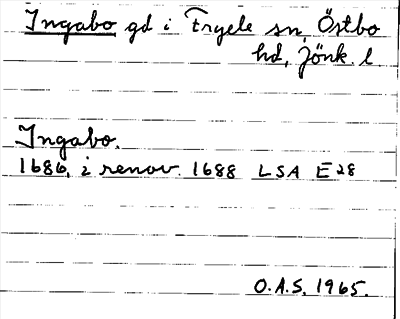 Ingabo gd i Fryele sn, Östbo
hd, Jönk. l.
Ingabo.
1686, i renov. 1688 LSA E 28
O.A.S. 1965.